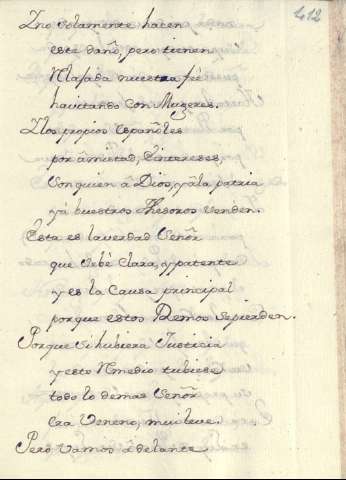 412
Y no solamente hacen
este daño, pero tienen
Ultajada nuestra feé
havitando con Mugeres.
Y los propios Españoles
por âmistad, E intereses,
son quien â Dios, y âla patria
y â buestros Thesoros venden.
Esta es la verdad Señor
que sebé clara, y patente
y es la Causa principal
porque estos Remos sepierden.
Porque si hubiera Justicia
y esto Remedio tubiese
todo lo demas Señor
era Veneno, mui leve.
Pero vamos âdelante